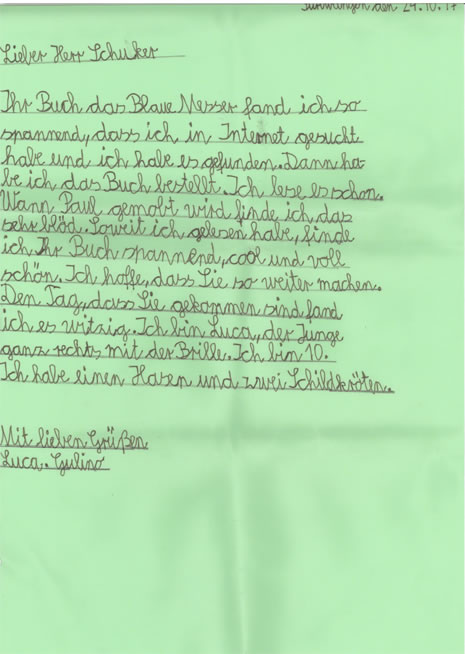 den 24.10.17
Lieber Herr Schuker
Ihr Buch das Blaue Messer fand ich so
spannend, dass ich in Internet gesucht
habe und ich habe es gefunden. Dann ha-
be ich das Buch bestellt. Ich lese es schon.
Wann Paul gemobt wird finde ich das
sehr blöd. Soweit ich gelesen habe, finde
ich Ihr Buch spannend, cool und voll
schön. Ich hoffe, dass Sie so weiter machen.
Den Tag, dass Sie gekommen sind fand
ich es witzig. Ich bin Luca, der Junge
ganz rechts mit der Brille. Ich bin 10.
Ich habe einen Hasen und zwei Schildkröten.
Mit lieben Grüßen
Luca. Gulino